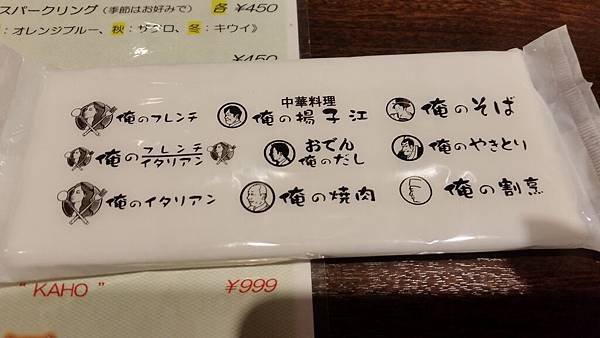 スパークリング(季節はお好みで) 各 ¥450
：オレンジブルー、秋：ザクロ、冬：キウイ》
¥450
俺のフレンチ
中華料理
俺の揚子江
俺のそば
俺のフレンチ
イタリアン
おでん
俺のだし
俺のやきとり
俺のイタリアン
俺の焼肉
俺の割烹
“ KAHO ” ¥999